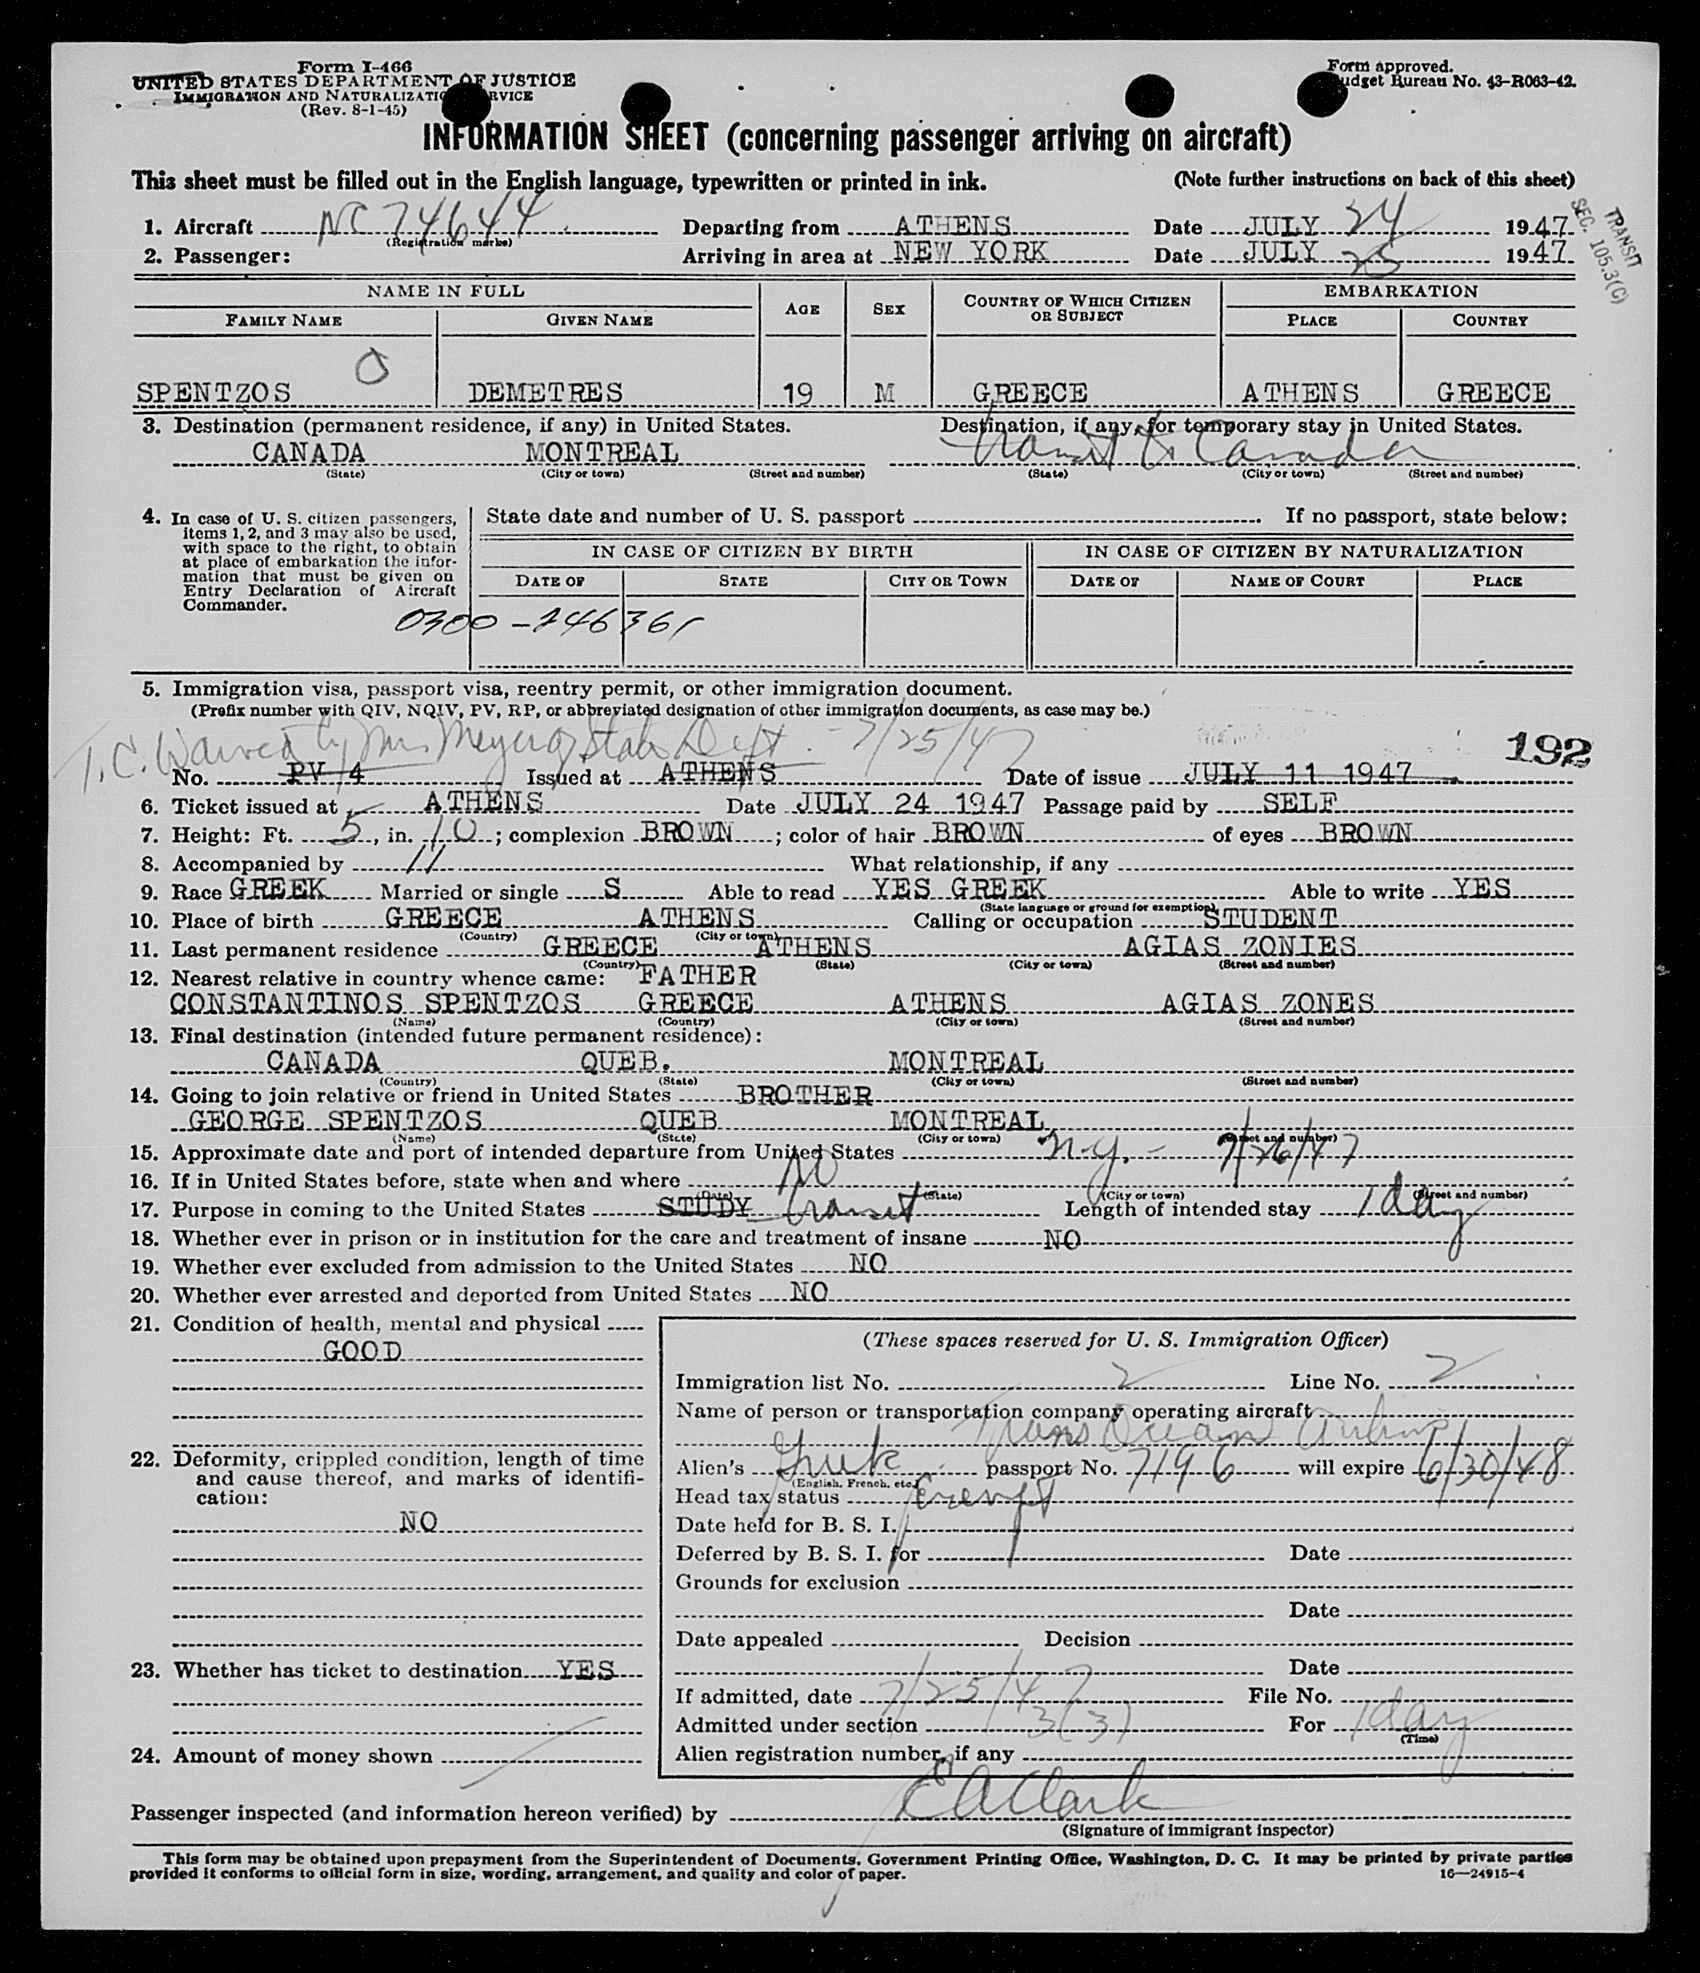 Form I-466
UNITED STATES DEPARTMENT OF JUSTICE
IMMIGRATION AND NATURALIZATION SERVICE
(Rev. 8-1-45)
Form approved.
Budget Bureau No. 43-R063-42.
INFORMATION SHEET (concerning passenger arriving on aircraft)
This sheet must be filled out in the English language, typewritten or printed in ink. (Note further instructions on back of this sheet)
1. Aircraft NC 74644 Departing from ATHENS Date JULY 24 1947
(Registration marks)
2. Passenger: Arriving in area at NEW YORK Date JULY 25 1947
TRANSIT
SEC. 105.3(C)
NAME IN FULL AGE SEX COUNTRY OF WHICH CITIZEN OR SUBJECT EMBARKATION
FAMILY NAME GIVEN NAME PLACE COUNTRY
SPENTZOS DEMETRES 19 M GREECE ATHENS GREECE
3. Destination (permanent residence, if any) in United States. Destination, if any, for temporary stay in United States.
CANADA MONTREAL transit to Canada
(State) (City or town) (Street and number) (State) (City or town) (Street and number)
4. In case of U. S. citizen passengers, items 1, 2, and 3 may also be used, with space to the right, to obtain at place of embarkation the information that must be given on Entry Declaration of Aircraft Commander.
State date and number of U. S. passport . If no passport, state below:
IN CASE OF CITIZEN BY BIRTH IN CASE OF CITIZEN BY NATURALIZATION
DATE OF STATE CITY OR TOWN DATE OF NAME OF COURT PLACE
0300-246361
5. Immigration visa, passport visa, reentry permit, or other immigration document.
(Prefix number with QIV, NQIV, PV, RP, or abbreviated designation of other immigration documents, as case may be.)
T.C. Waived by Mrs Meyer of State Dept. - 7/25/47
192
No. PV 4 Issued at ATHENS Date of issue JULY 11 1947
6. Ticket issued at ATHENS Date JULY 24 1947 Passage paid by SELF
7. Height: Ft. 5, in. 10; complexion BROWN; color of hair BROWN of eyes BROWN
8. Accompanied by What relationship, if any
9. Race GREEK Married or single S Able to read YES GREEK Able to write YES
(State language or ground for exemption)
10. Place of birth GREECE ATHENS Calling or occupation STUDENT
(Country) (City or town)
11. Last permanent residence GREECE ATHENS AGIAS ZONIES
(Country) (State) (City or town) (Street and number)
12. Nearest relative in country whence came: FATHER
CONSTANTINOS SPENTZOS GREECE ATHENS AGIAS ZONES
(Name) (Country) (City or town) (Street and number)
13. Final destination (intended future permanent residence):
CANADA QUEB. MONTREAL
(Country) (State) (City or town) (Street and number)
14. Going to join relative or friend in United States BROTHER
GEORGE SPENTZOS QUEB MONTREAL
(Name) (State) (City or town) (Street and number)
15. Approximate date and port of intended departure from United States N.Y. - 7/26/47
16. If in United States before, state when and where NO
(Date) (State) (City or town) (Street and number)
17. Purpose in coming to the United States STUDY transit Length of intended stay 1 day
18. Whether ever in prison or in institution for the care and treatment of insane NO
19. Whether ever excluded from admission to the United States NO
20. Whether ever arrested and deported from United States NO
21. Condition of health, mental and physical
GOOD
22. Deformity, crippled condition, length of time and cause thereof, and marks of identification:
NO
23. Whether has ticket to destination YES
24. Amount of money shown
(These spaces reserved for U. S. Immigration Officer)
Immigration list No. 2 Line No. 2
Name of person or transportation company operating aircraft
Trans Ocean Airlines
Alien's Greek passport No. 7196 will expire 6/30/48
(English, French, etc.)
Head tax status Exempt
Date held for B. S. I.
Deferred by B. S. I. for Date
Grounds for exclusion
Date
Date appealed Decision
Date
If admitted, date 7/25/47 File No.
Admitted under section 3(3) For 1 day
(Time)
Alien registration number, if any
Passenger inspected (and information hereon verified) by E A Clark
(Signature of immigrant inspector)
This form may be obtained upon prepayment from the Superintendent of Documents, Government Printing Office, Washington, D. C. It may be printed by private parties
provided it conforms to official form in size, wording, arrangement, and quality and color of paper. 16—24915-4